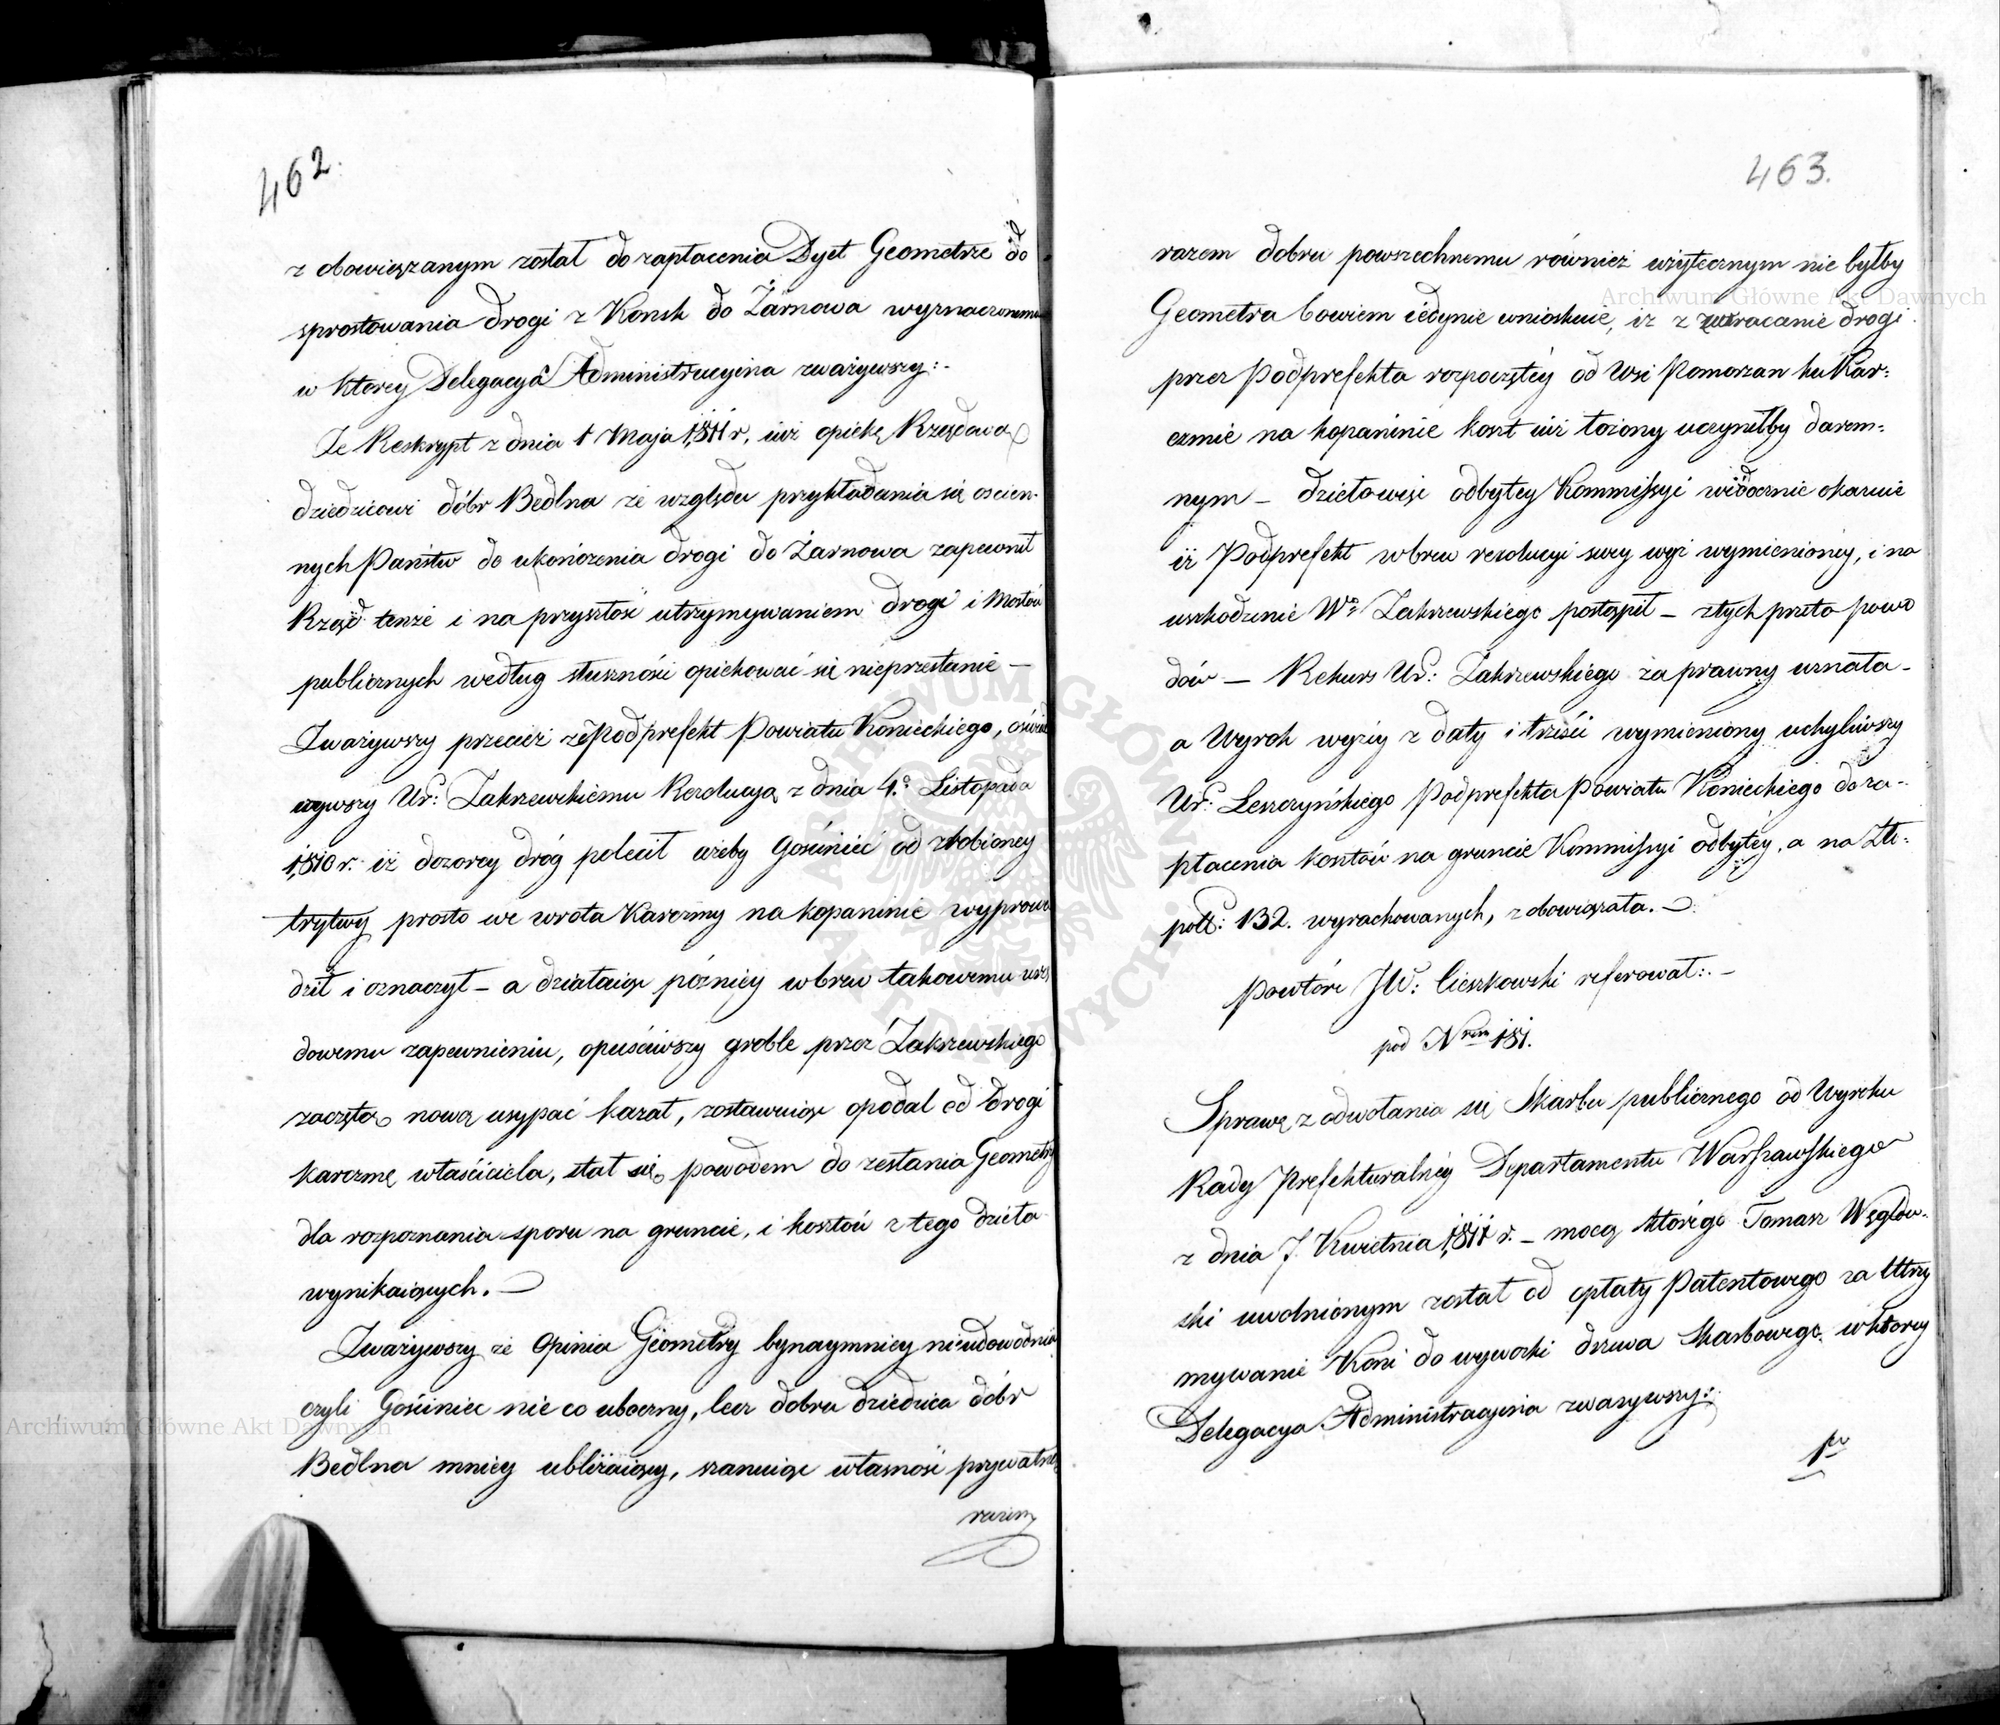 462.
z obowiązanym został do zapłacenia Dyet Geometrze do
sprostowania drogi z Konsk do Żarnowa wyznaczonemu
w ktorey Delegacya Administracyina zważywszy:-
Że Reskrypt z dnia 1 Maja 1811 r, iuż opiekę Rządową
dziedzicowi dóbr Bedlna ze względu przykładania się oscien-
nych Państw do ukończenia drogi do Żarnowa zapewnił
Rząd tenże i na przyszłość utrzymywaniem drogi i Mostów
publicznych według słuszności opiekować się nieprzestanie —
Zważywszy przecież że Podprefekt Powiatu Konieckiego,
Ur: Zakrzewskiemu Rezolucyą z dnia 4.º Listopada
1810 r: iż dozorcy dróg polecił ażeby Gościniec od zrobioney
trytwy prosto we wrota Karczmy na kopaninie wyprowa
dził i oznaczył — a działaiąc pózniey wbrew takowemu urzę
dowemu zapewnieniu, opuściwszy groble przez Zakrzewskiego
zaczętą nową usypać kazał, zostawuiąc opodal od drogi
karczmę właściciela, stał się powodem do zesłania Geometry
dla rozpoznania sporu na gruncie, i kosztów z tego dzieła
wynikaiących. —
Zważywszy że Opinia Geometry bynaymniey nieudowodnia
czyli Gościniec nieco uboczny, lecz dobru dziedzica dóbr
Bedlna mniey ubliżaiący, szanuiąc własność prywatną
razem
463.
razem dobru powszechnemu również użytecznym nie byłby
Geometra bowiem iedynie wnioskuie, iż zwracanie drogi
przez Podprefekta rozpoczętéy od Wsi Pomorzan ku Kar:
czmie na kopaninie koszt iuż łożony uczyniłby darem-
nym — dziełowiże odbytey Kommissyi widocznie okazuie
iż Podprefekt wbrew rezolucyi swey wyż wymienioney, i na
uszkodzenie Wº Zakrzewskiego postąpił — z tych przeto powo
dów — Rekurs Ur: Zakrzewskiego za prawny uznała —
a Wyrok wyżey z daty i treści wymieniony uchyliwszy
Ur: Leszczyńskiego Podprefekta Powiatu Konieckiego do za-
płacenia kosztów na gruncie Kommissyi odbytey, a na Złł:
poll: 132. wyrachowanych, zobowiązała. —
Powtóre JW: Cieszkowski referował: —
pod Nrem 181.
Sprawę z odwołania się Skarbu publicznego od Wyroku
Rady Prefekturalnéy Departamentu Warszawskiego
z dnia 7. Kwietnia 1811 r. — mocą którego Tomasz Węglow-
ski uwolnionym został od opłaty Patentowego za Utrzy
mywanie Koni do wywozki drzewa Skarbowego, w ktorey
Delegacya Administracyina zważywszy:
1º
Archiwum Główne Akt Dawnych
Archiwum Główne Akt Dawnych
ARCHIWUM GŁÓWNE AKT DAWNYCH